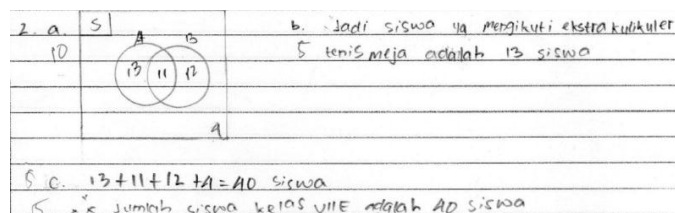 2. a.
10
S
A B
13 11 12
4
b. Jadi siswa yg mengikuti ekstrakulikuler
5 tenis meja adalah 13 siswa
5 c. 13+11+12+4=40 siswa
Jumlah siswa kelas VIIE adalah 40 siswa